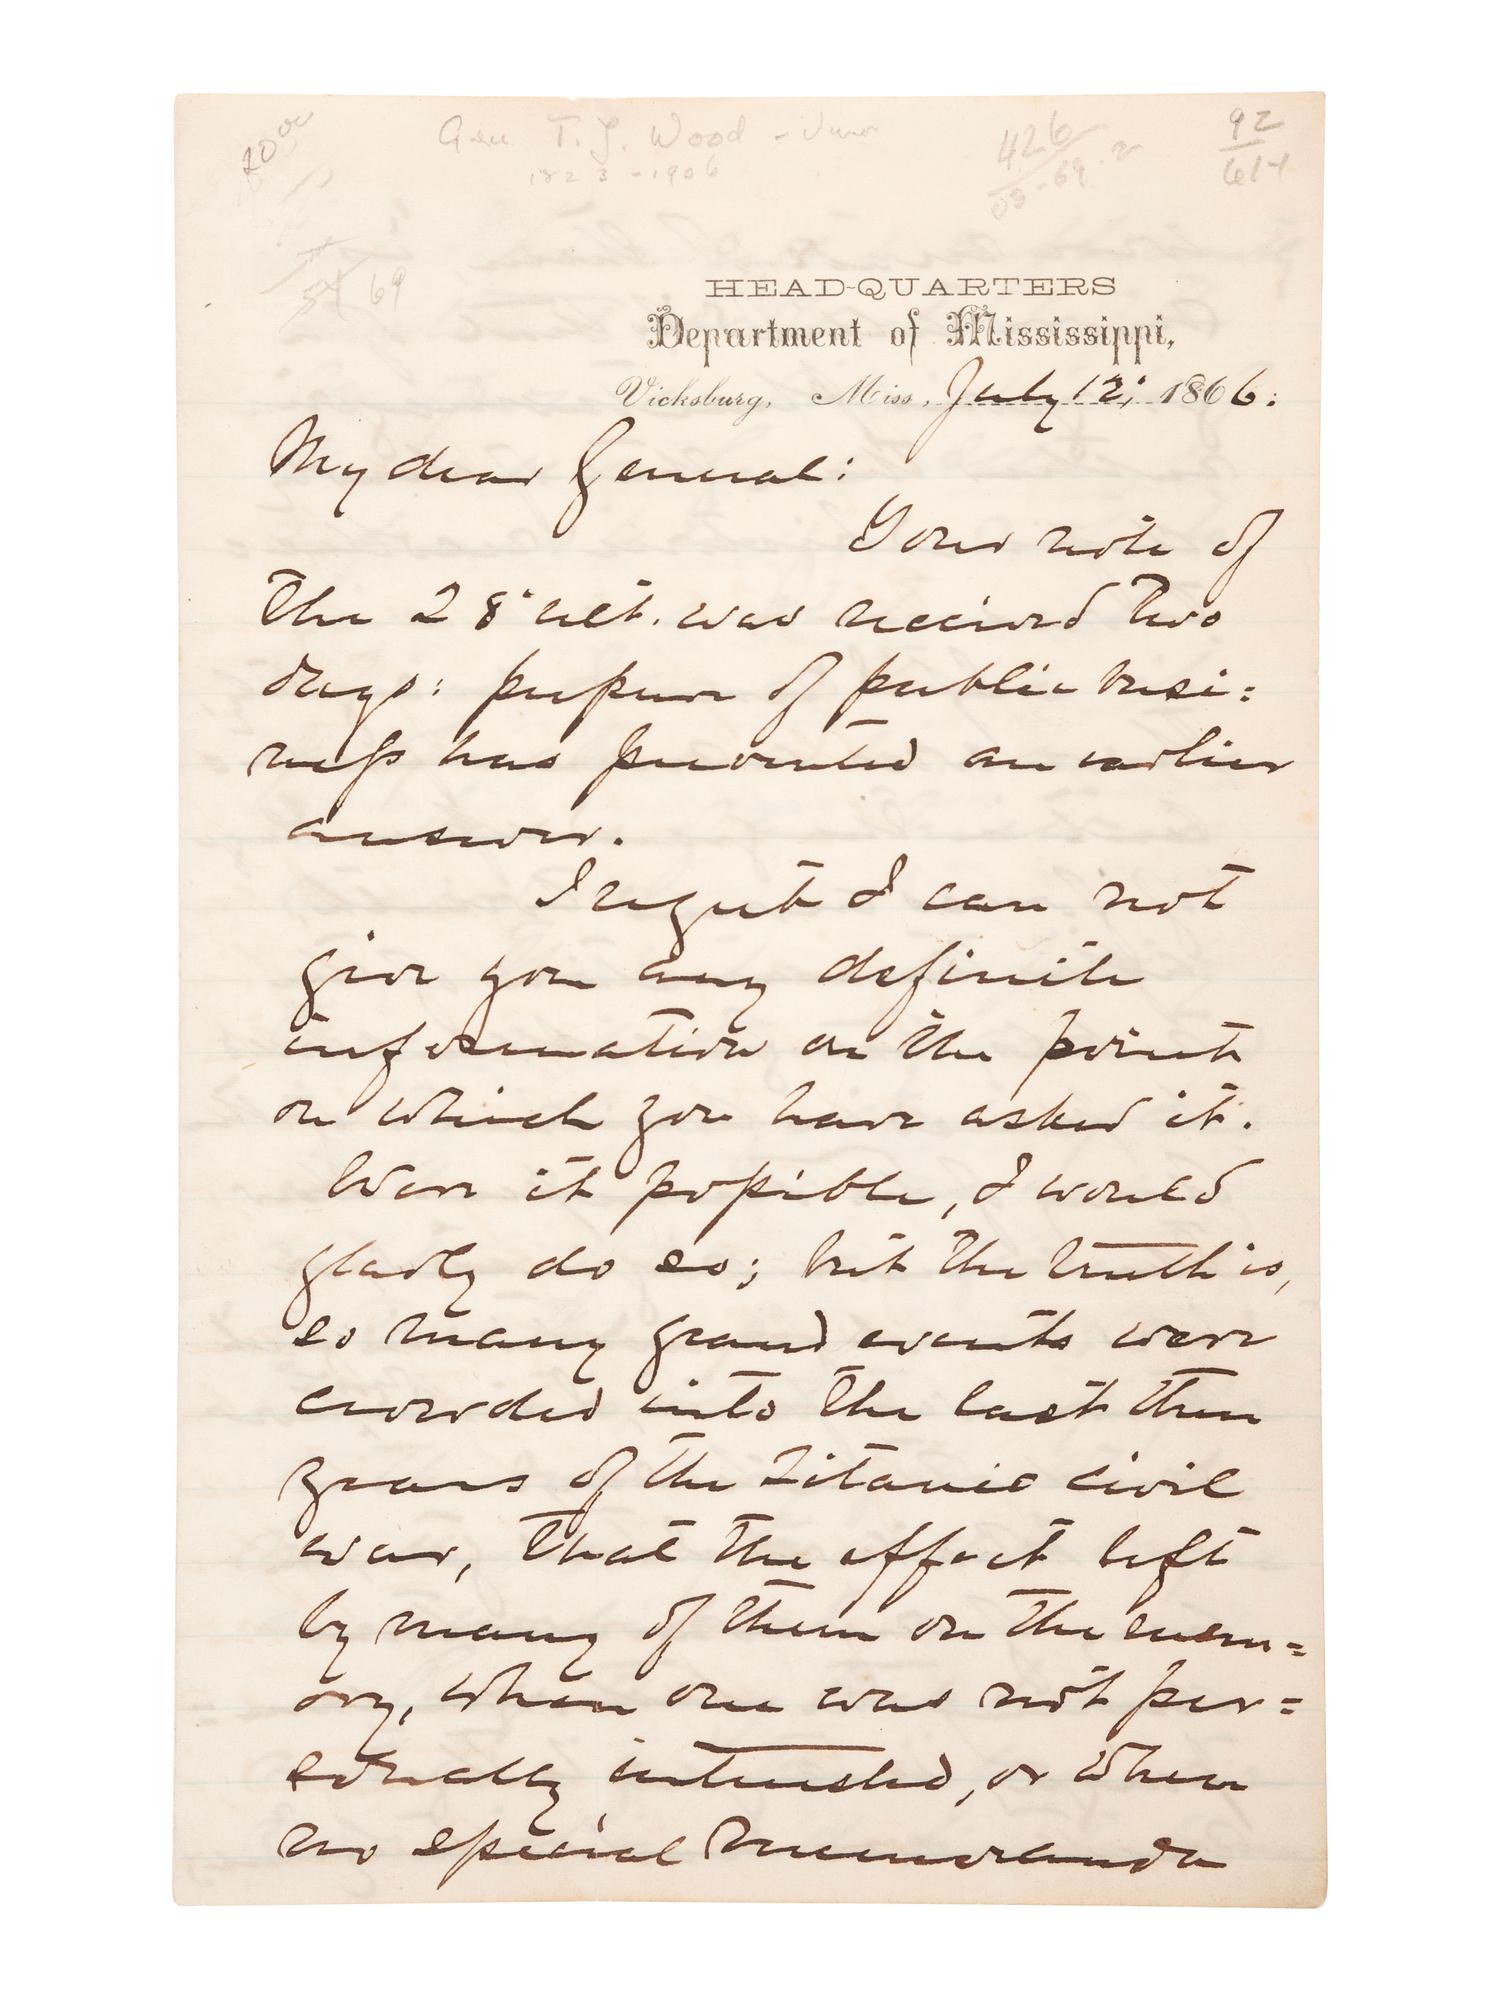 20 00
Gen T. J. Wood - Union
1823 - 1906
426
92
614
69
HEAD-QUARTERS
Department of Mississippi,
Vicksburg, Miss, July 12, 1866.
My dear General:
Your note of
the 28" ult. was received two
days: pressure of public busi=
ness has prevented an earlier
answer.
I regret I can not
give you any definite
information on the point
on which you have asked it.
Were it possible, I would
gladly do so; but the truth is,
so many grand events were
crowded into the last three
years of the Titanic civil
war, that the effect left
by many of them on the mem=
ory, when one was not per=
sonally interested, or when
no special memoranda